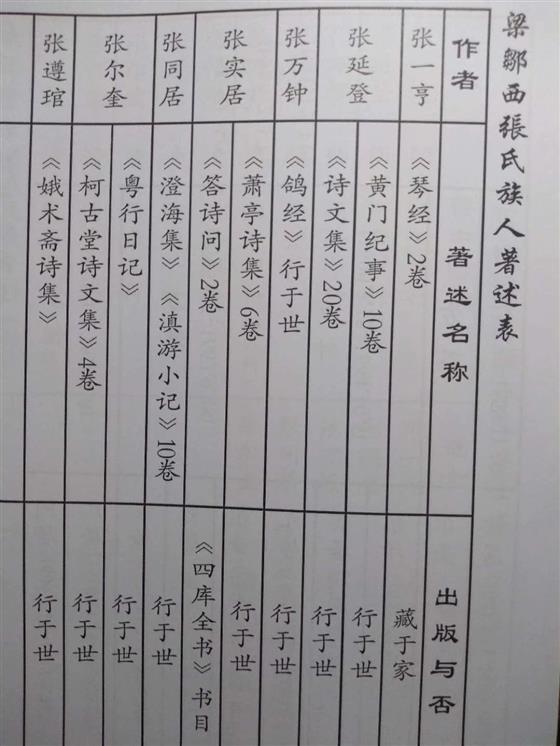 梁鄒西張氏族人著述表
作者
著述名称
出版与否
张一亨
《琴经》2卷
藏于家
张延登
《黄门纪事》10卷
行于世
《诗文集》20卷
行于世
张万钟
《鸽经》行于世
行于世
张实居
《萧亭诗集》6卷
行于世
《答诗问》2卷
《四库全书》书目
张同居
《澄海集》《滇游小记》10卷
行于世
张尔奎
《粤行日记》
行于世
《柯古堂诗文集》4卷
行于世
张遵琯
《娥术斋诗集》
行于世